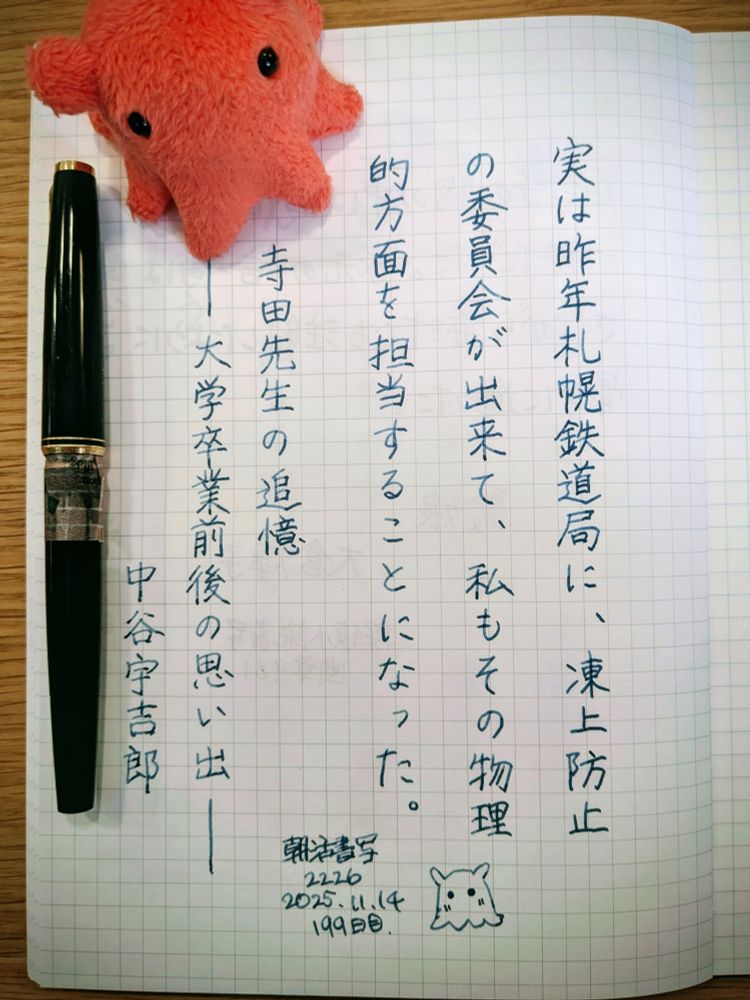 実は昨年札幌鉄道局に、凍上防止
の委員会が出来て、私もその物理
的方面を担当することになった。
寺田先生の追憶
―大学卒業前後の思い出―
中谷宇吉郎
朝活書写
2226
2025.11.14
199日目.